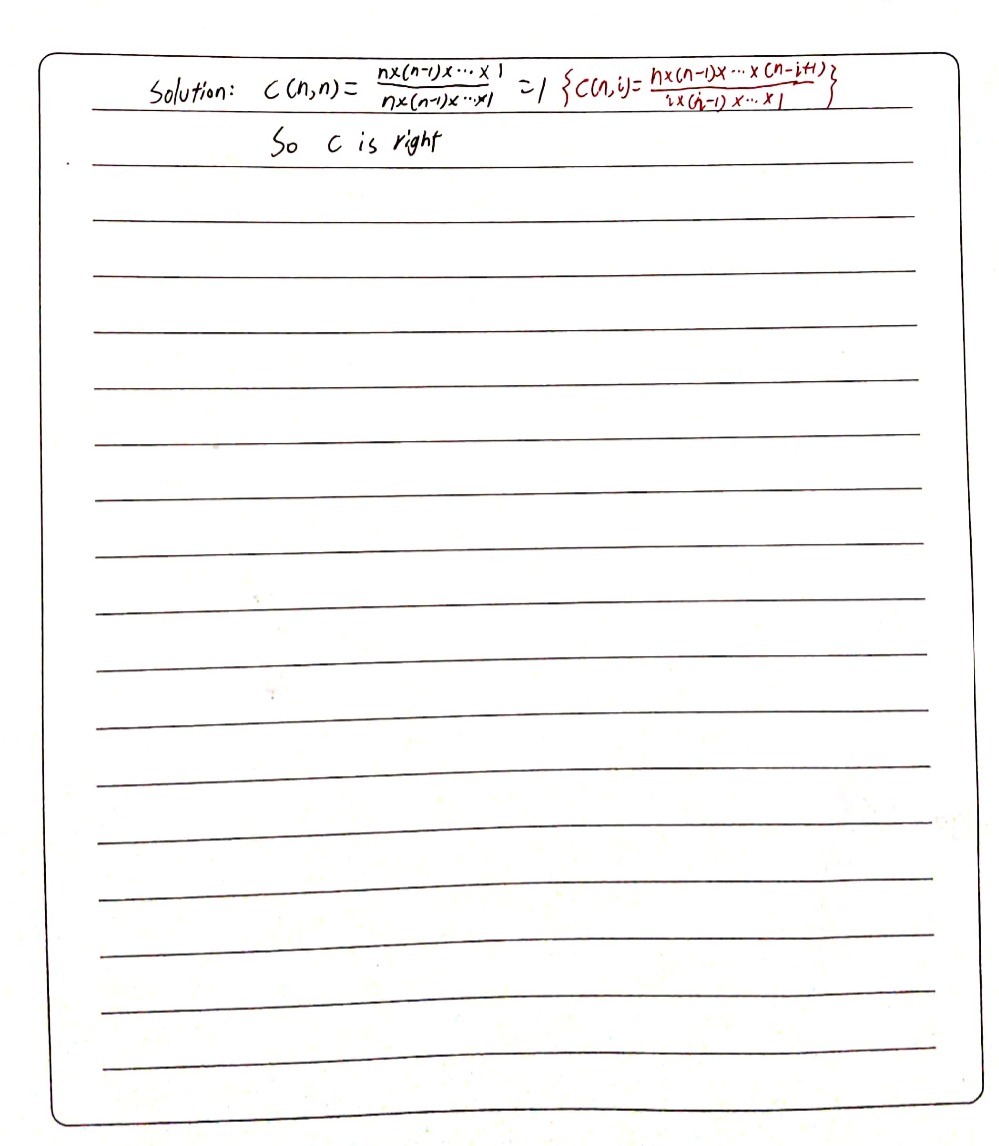 Solution: C(n,n) = \frac{n×(n-1)×⋯×1}{n×(n-1)×⋯×1} =1 {C(n,i)= \frac{n×(n-1)×⋯×(n-i+1)}{i×(i-1)×⋯×1}}
So C is right